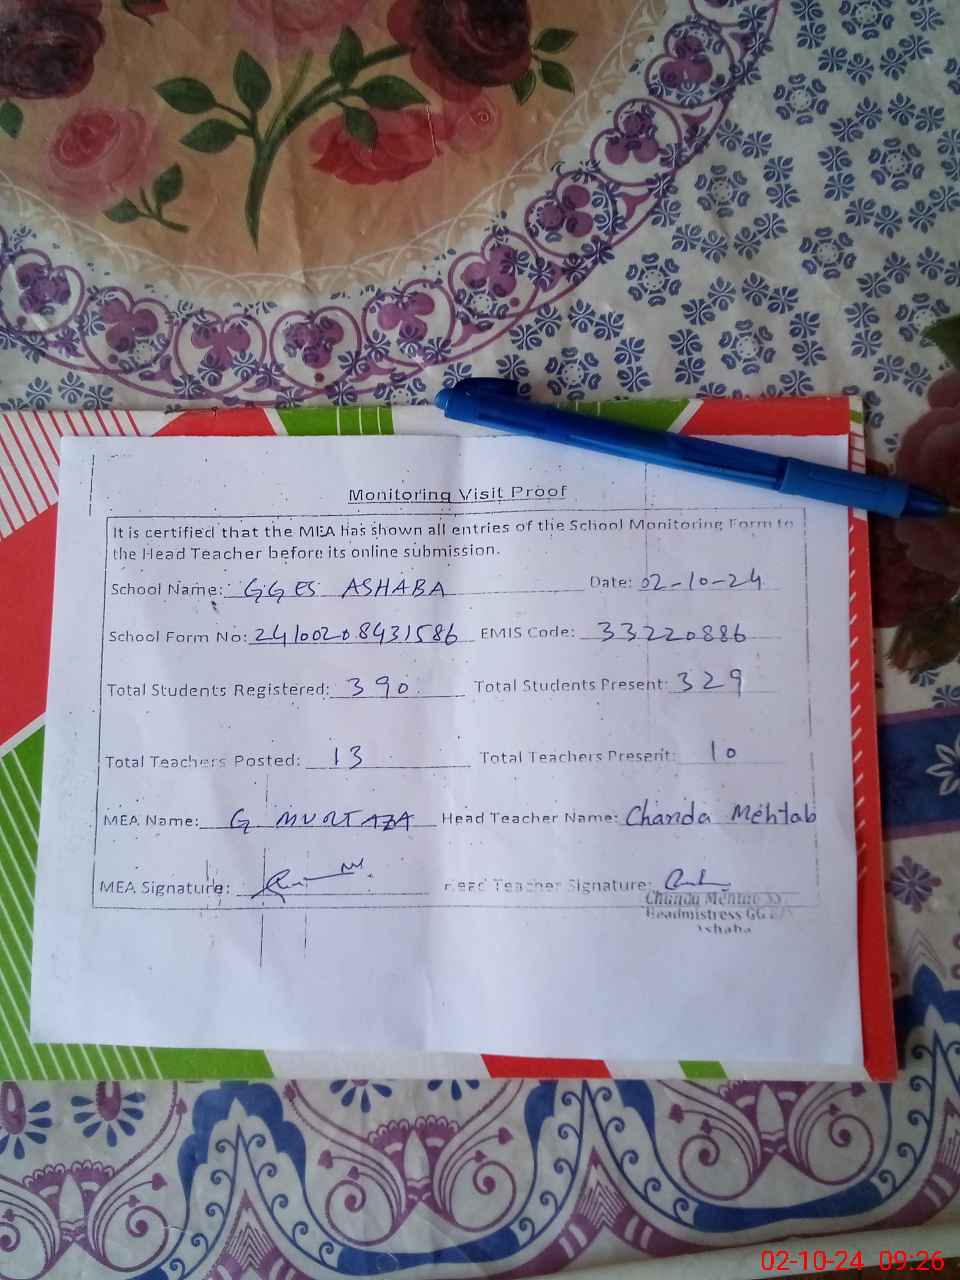 Monitoring Visit Proof
It is certified that the MEA has shown all entries of the School Monitoring Form to
the Head Teacher before its online submission.
School Name: GGES ASHABA Date: 02-10-24
School Form No: 24100208431586 EMIS Code: 33220886
Total Students Registered: 390 Total Students Present: 329
Total Teachers Posted: 13 Total Teachers Present: 10
MEA Name: G MURTAZA Head Teacher Name: Chanda Mehtab
MEA Signature: Head Teacher Signature:
Chanda Mehtab
Headmistress GGES
Ashaba
02-10-24 09:26